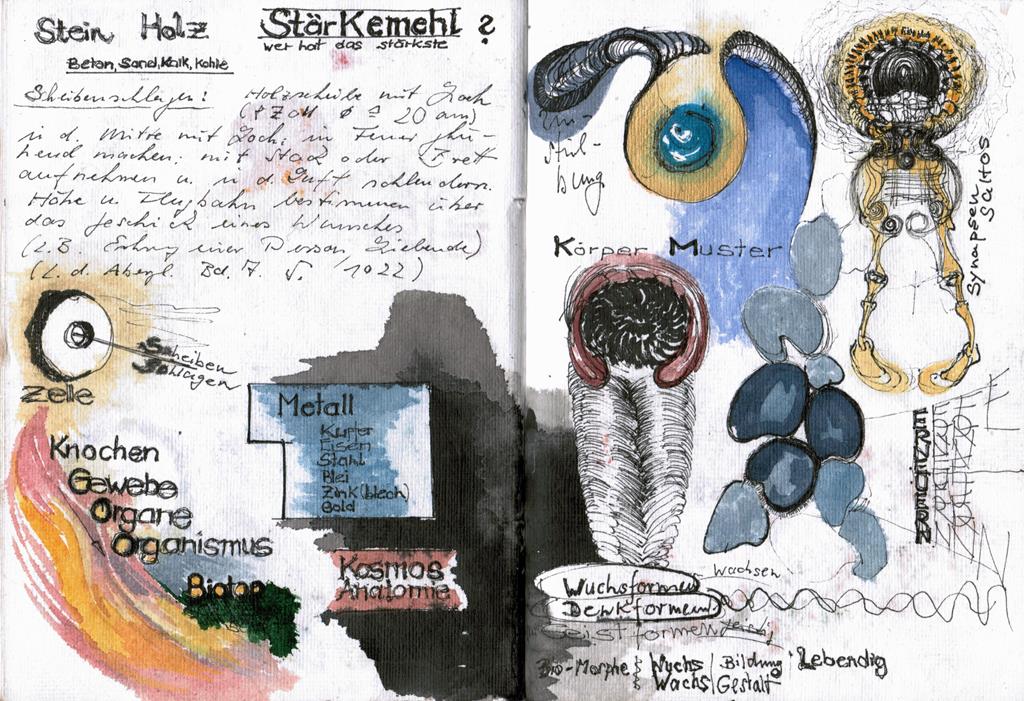 Stein Holz
Beton, Sand, Kalk, Kohle
StärKemehl ?
wer hat das stärkste
Scheibenschlagen: Holzscheibe mit Loch
in d. Mitte mit Loch, in Feuer glü-
hend machen; mit Stock oder Brett
aufnehmen u. in d. Luft schleudern.
Höhe u. Flugbahn bestimmen über
das Geschick eines Wunsches
(z.B. einer Person, Liebende)
Bd. 7. 1022)
Scheiben
Schlagen
Zelle
Knochen
Gewebe
Organe
Organismus
Biotop
Metall
Kupfer
Eisen
Stahl
Blei
Zink(blech)
Gold
Kosmos
Anatomie
Um-
stül-
bung
Körper Muster
Synapsen
Saltos
wachsen
Wuchsformen
Denkformen
Geistformen
Bio-Morphe Wuchs | Bildung Lebendig
Wachs | Gestalt